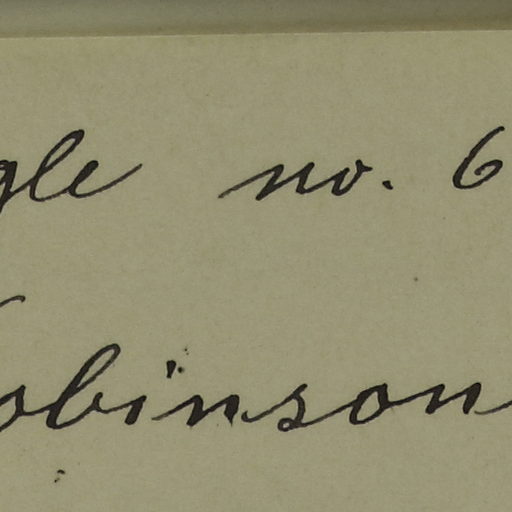 gle no. 6
obinson